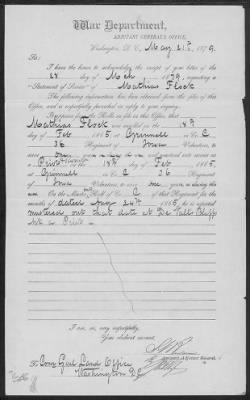 War Department,
ADJUTANT GENERAL'S OFFICE,
Washington, D. C., May 21st, 1879.
Sir:
I have the honor to acknowledge the receipt of your letter of the
28 day of Mch 1879, requesting a
"Statement of Service" of Mathias Flock
The following information has been obtained from the files of this
Office, and is respectfully furnished in reply to your inquiry.
It appears from the Rolls on file in this Office, that
Mathias Flock was on the 18th
day of Feb 1865 at Grinnell in Co. C
36 Regiment of Iowa Volunteers, to
serve one years
as a Private on the 18th day of Feb 1865
at Grinnell in Co. C 36
Regiment of Iowa Volunteers, to serve one years
On the Muster Roll of Co. C of that Regiment for the
months of dated Aug 24th 1865 he is reported
mustered out that date at De Valls Bluff
Ark as Private
I am, sir, very respectfully,
Your obedient servant,
Assistant Adjutant General.
To Com Genl Land Office
Washington D.C.